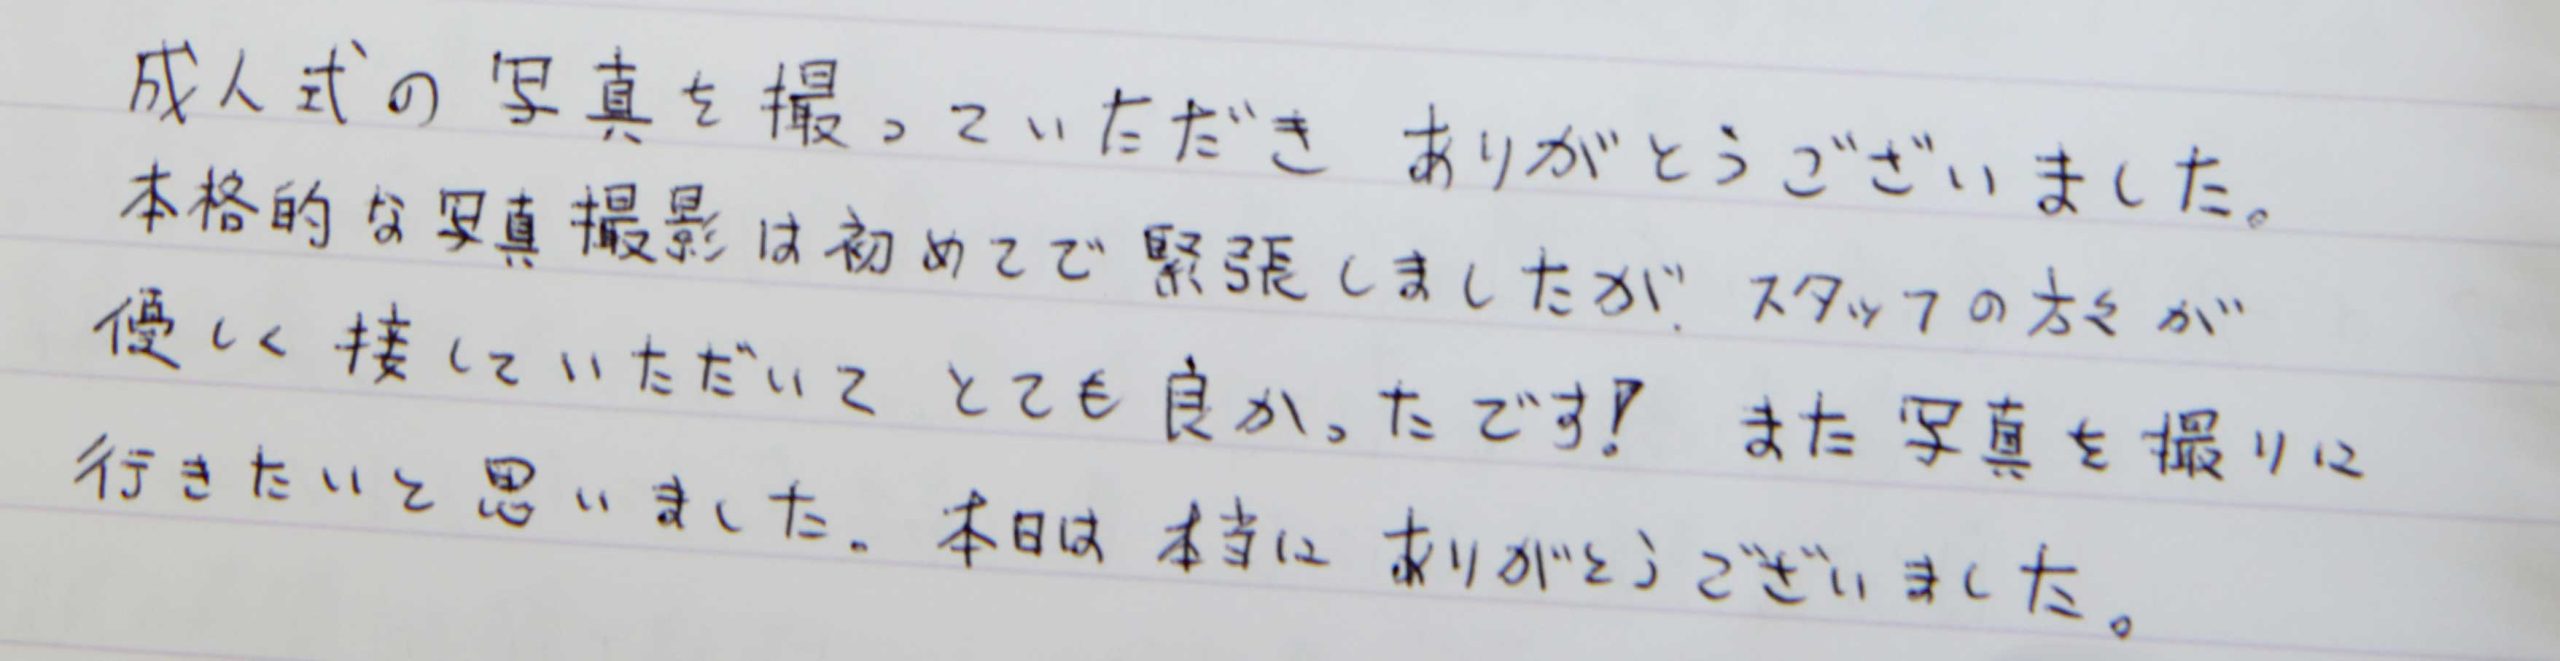 成人式の写真を撮っていただき ありがとうございました。
本格的な写真撮影は初めてで緊張しましたが、スタッフの方々が
優しく接していただいて とても良かったです! また写真を撮りに
行きたいと思いました。本日は 本当に ありがとうございました。